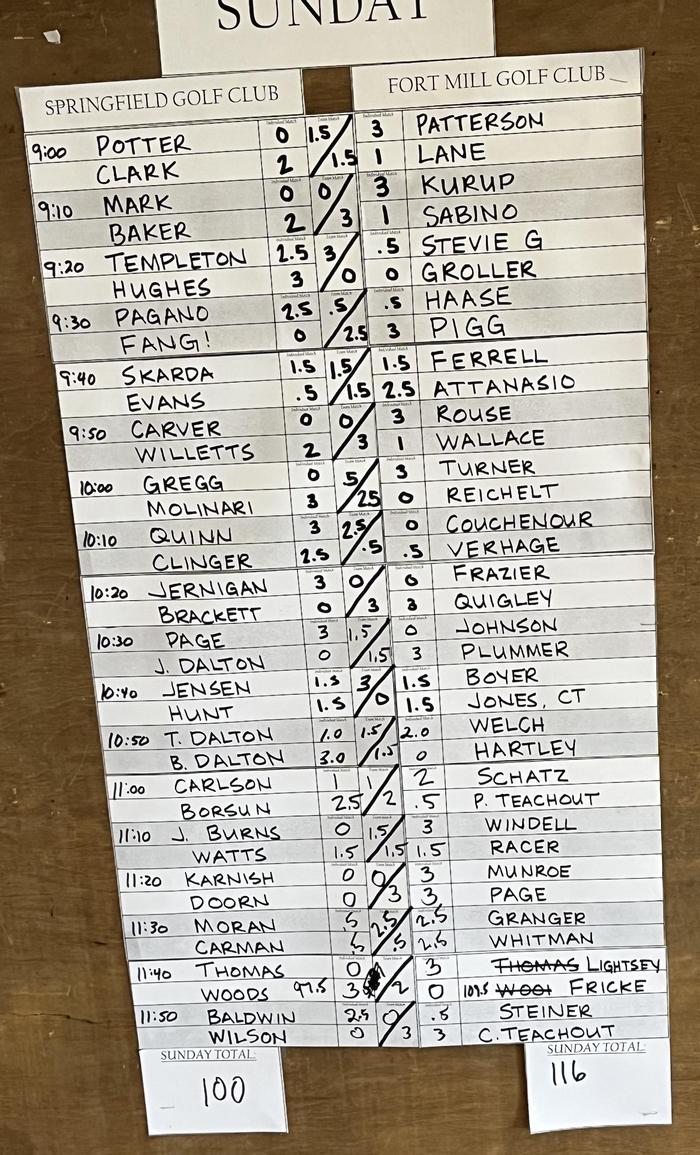 SUNDAY
SPRINGFIELD GOLF CLUB FORT MILL GOLF CLUB
9:00 POTTER 0 1.5 3 PATTERSON
CLARK 2 1.5 1 LANE
9:10 MARK 0 0 3 KURUP
BAKER 2 3 1 SABINO
9:20 TEMPLETON 2.5 3 .5 STEVIE G
HUGHES 3 0 0 GROLLER
9:30 PAGANO 2.5 .5 .5 HAASE
FANG! 0 2.5 3 PIGG
9:40 SKARDA 1.5 1.5 1.5 FERRELL
EVANS .5 1.5 2.5 ATTANASIO
9:50 CARVER 0 0 3 ROUSE
WILLETTS 2 3 1 WALLACE
10:00 GREGG 0 .5 3 TURNER
MOLINARI 3 2.5 0 REICHELT
10:10 QUINN 3 2.5 0 COUCHENOUR
CLINGER 2.5 .5 .5 VERHAGE
10:20 JERNIGAN 3 0 0 FRAZIER
BRACKETT 0 3 3 QUIGLEY
10:30 PAGE 3 1.5 0 JOHNSON
J. DALTON 0 1.5 3 PLUMMER
10:40 JENSEN 1.5 3 1.5 BOYER
HUNT 1.5 0 1.5 JONES, CT
10:50 T. DALTON 1.0 1.5 2.0 WELCH
B. DALTON 3.0 1.5 0 HARTLEY
11:00 CARLSON 1 1 2 SCHATZ
BORSUN 2.5 2 .5 P. TEACHOUT
11:10 J. BURNS 0 1.5 3 WINDELL
WATTS 1.5 1.5 1.5 RACER
11:20 KARNISH 0 0 3 MUNROE
DOORN 0 3 3 PAGE
11:30 MORAN .5 2.5 2.5 GRANGER
CARMAN .5 .5 2.5 WHITMAN
11:40 THOMAS 0 3 THOMAS LIGHTSEY
WOODS 97.5 3 2 0 107.5 WOOT FRICKE
11:50 BALDWIN 2.5 0 .5 STEINER
WILSON 0 3 3 C. TEACHOUT
SUNDAY TOTAL: SUNDAY TOTAL:
100 116